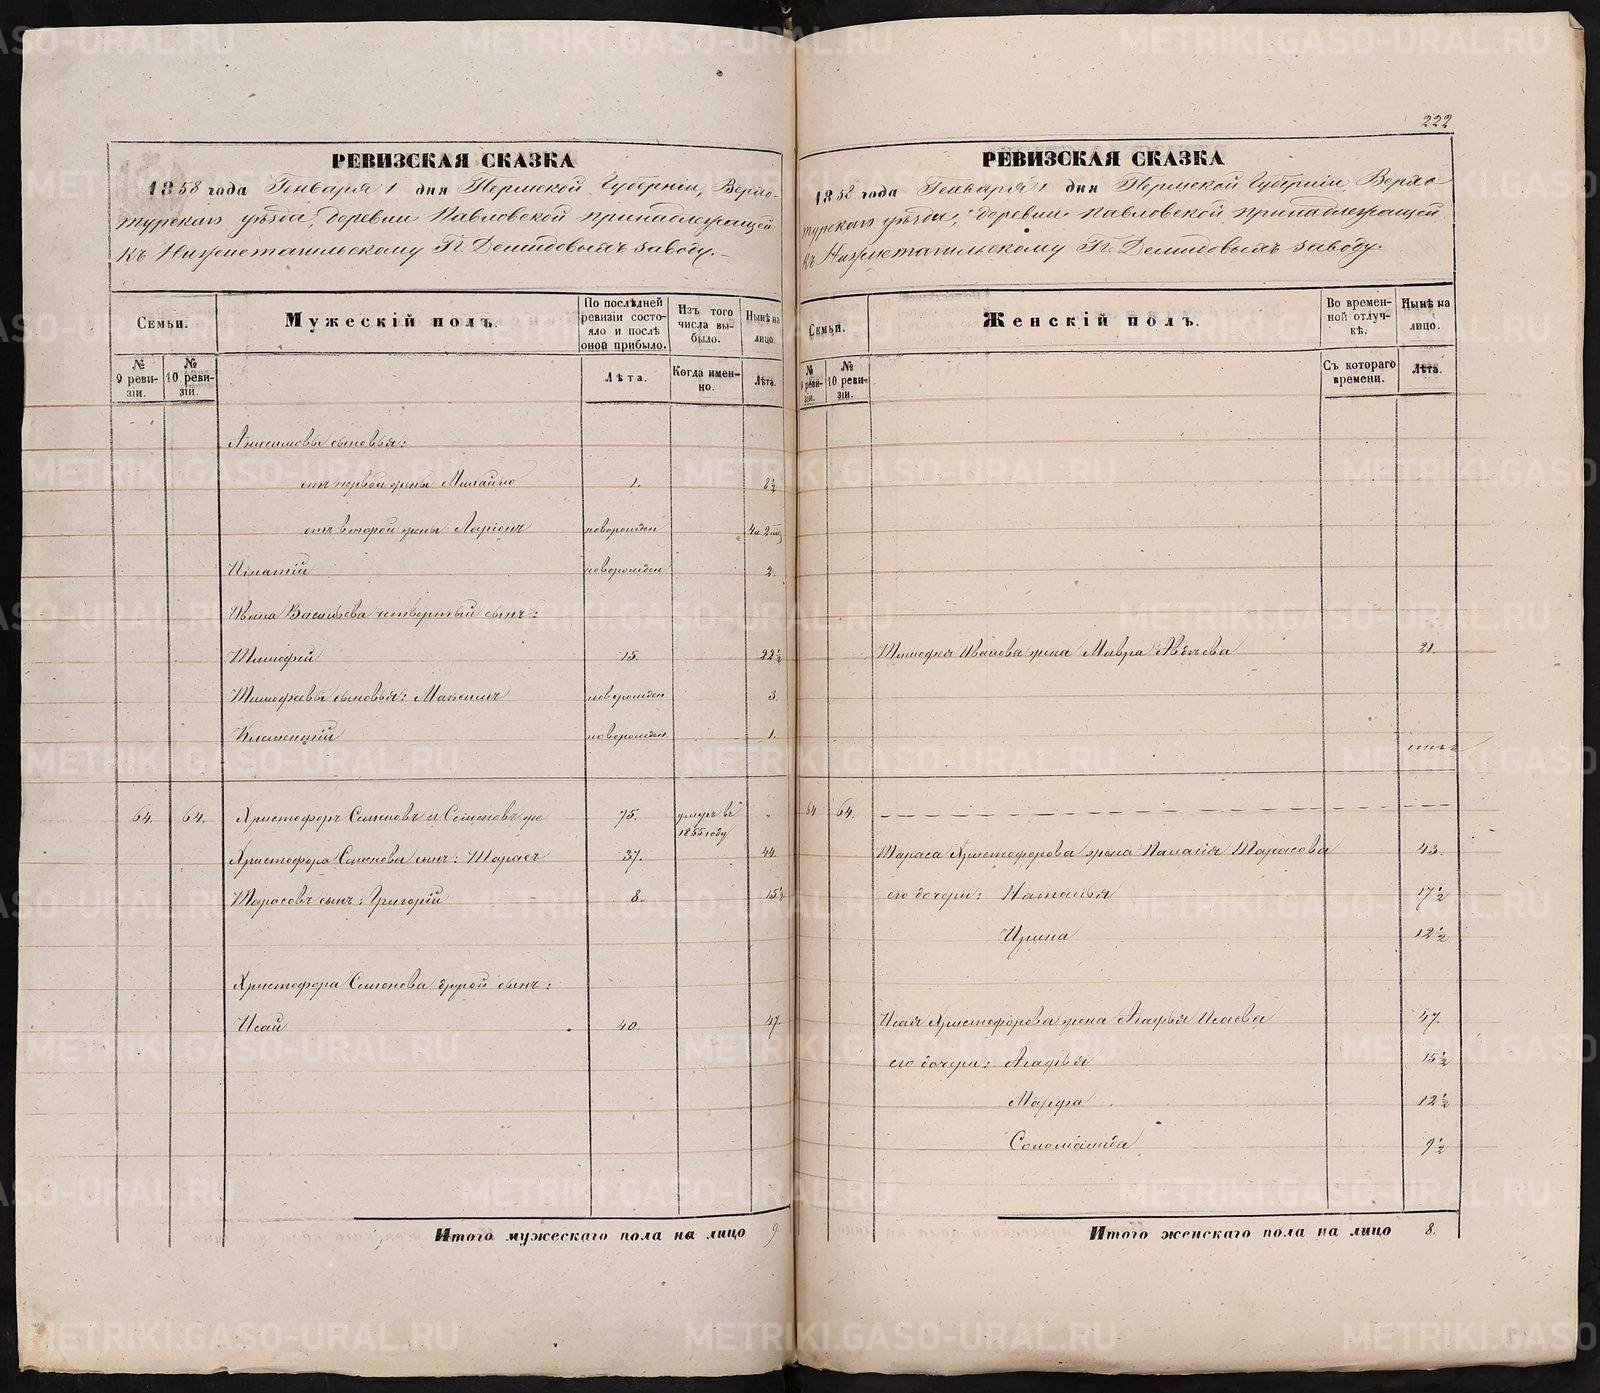 222
РЕВИЗСКАЯ СКАЗКА
1858 года Генваря 1 дня Пермской Губерніи, Верхо-
турскаго уѣзда, деревни Павловской принадлежащей
къ Нижнетагильскому Гг. Демидовыхъ заводу.
Семьи.
Мужескій полъ.
По послѣдней ревизіи состояло и послѣ оной прибыло.
Изъ того числа выбыло.
Нынѣ на лицо.
№ 9 ревизіи.
№ 10 ревизіи.
Лѣта.
Когда именно.
Лѣта.
Анисимовы сыновья:
отъ первой жены Михайло 1. 8½
отъ второй жены Ларіонъ новорожден 4 и 2 мц
Игнатій новорожден 2.
Ивана Васильева четвертый сынъ:
Тимофей 15. 22½
Тимофеевы сыновья: Максимъ новорожден 3.
Климентій новорожден 1.
64. 64. Христофоръ Семеновъ и Семеновъ же 75. умеръ въ 1855 году "
Христофора Семенова сынъ: Тарасъ 37. 44.
Тарасовъ сынъ: Григорій 8. 15½
Христофора Семенова другой сынъ:
Исай 40. 47.
Итого мужескаго пола на лицо 9
РЕВИЗСКАЯ СКАЗКА
1858 года Генваря 1 дня Пермской Губерніи, Верхо
турскаго уѣзда, деревни Павловской принадлежащей
къ Нижнетагильскому Гг. Демидовыхъ заводу.
Семьи.
Женскій полъ.
Во временной отлучкѣ.
Нынѣ на лицо.
№ 9 ревизіи.
№ 10 ревизіи.
Съ котораго времени.
Лѣта.
Тимофея Иванова жена Мавра 21.
64 64.
Тараса Христофорова жена Палагія Тарасова 43.
его дочери: Наталья 17½
Ирина 12½
Исая Христофорова жена Агафья Исаева 47.
его дочери: Агафья 15½
Марфа 12½
Соломанида 9½
Итого женскаго пола на лицо 8.
METRIKI.GASO-URAL.RU